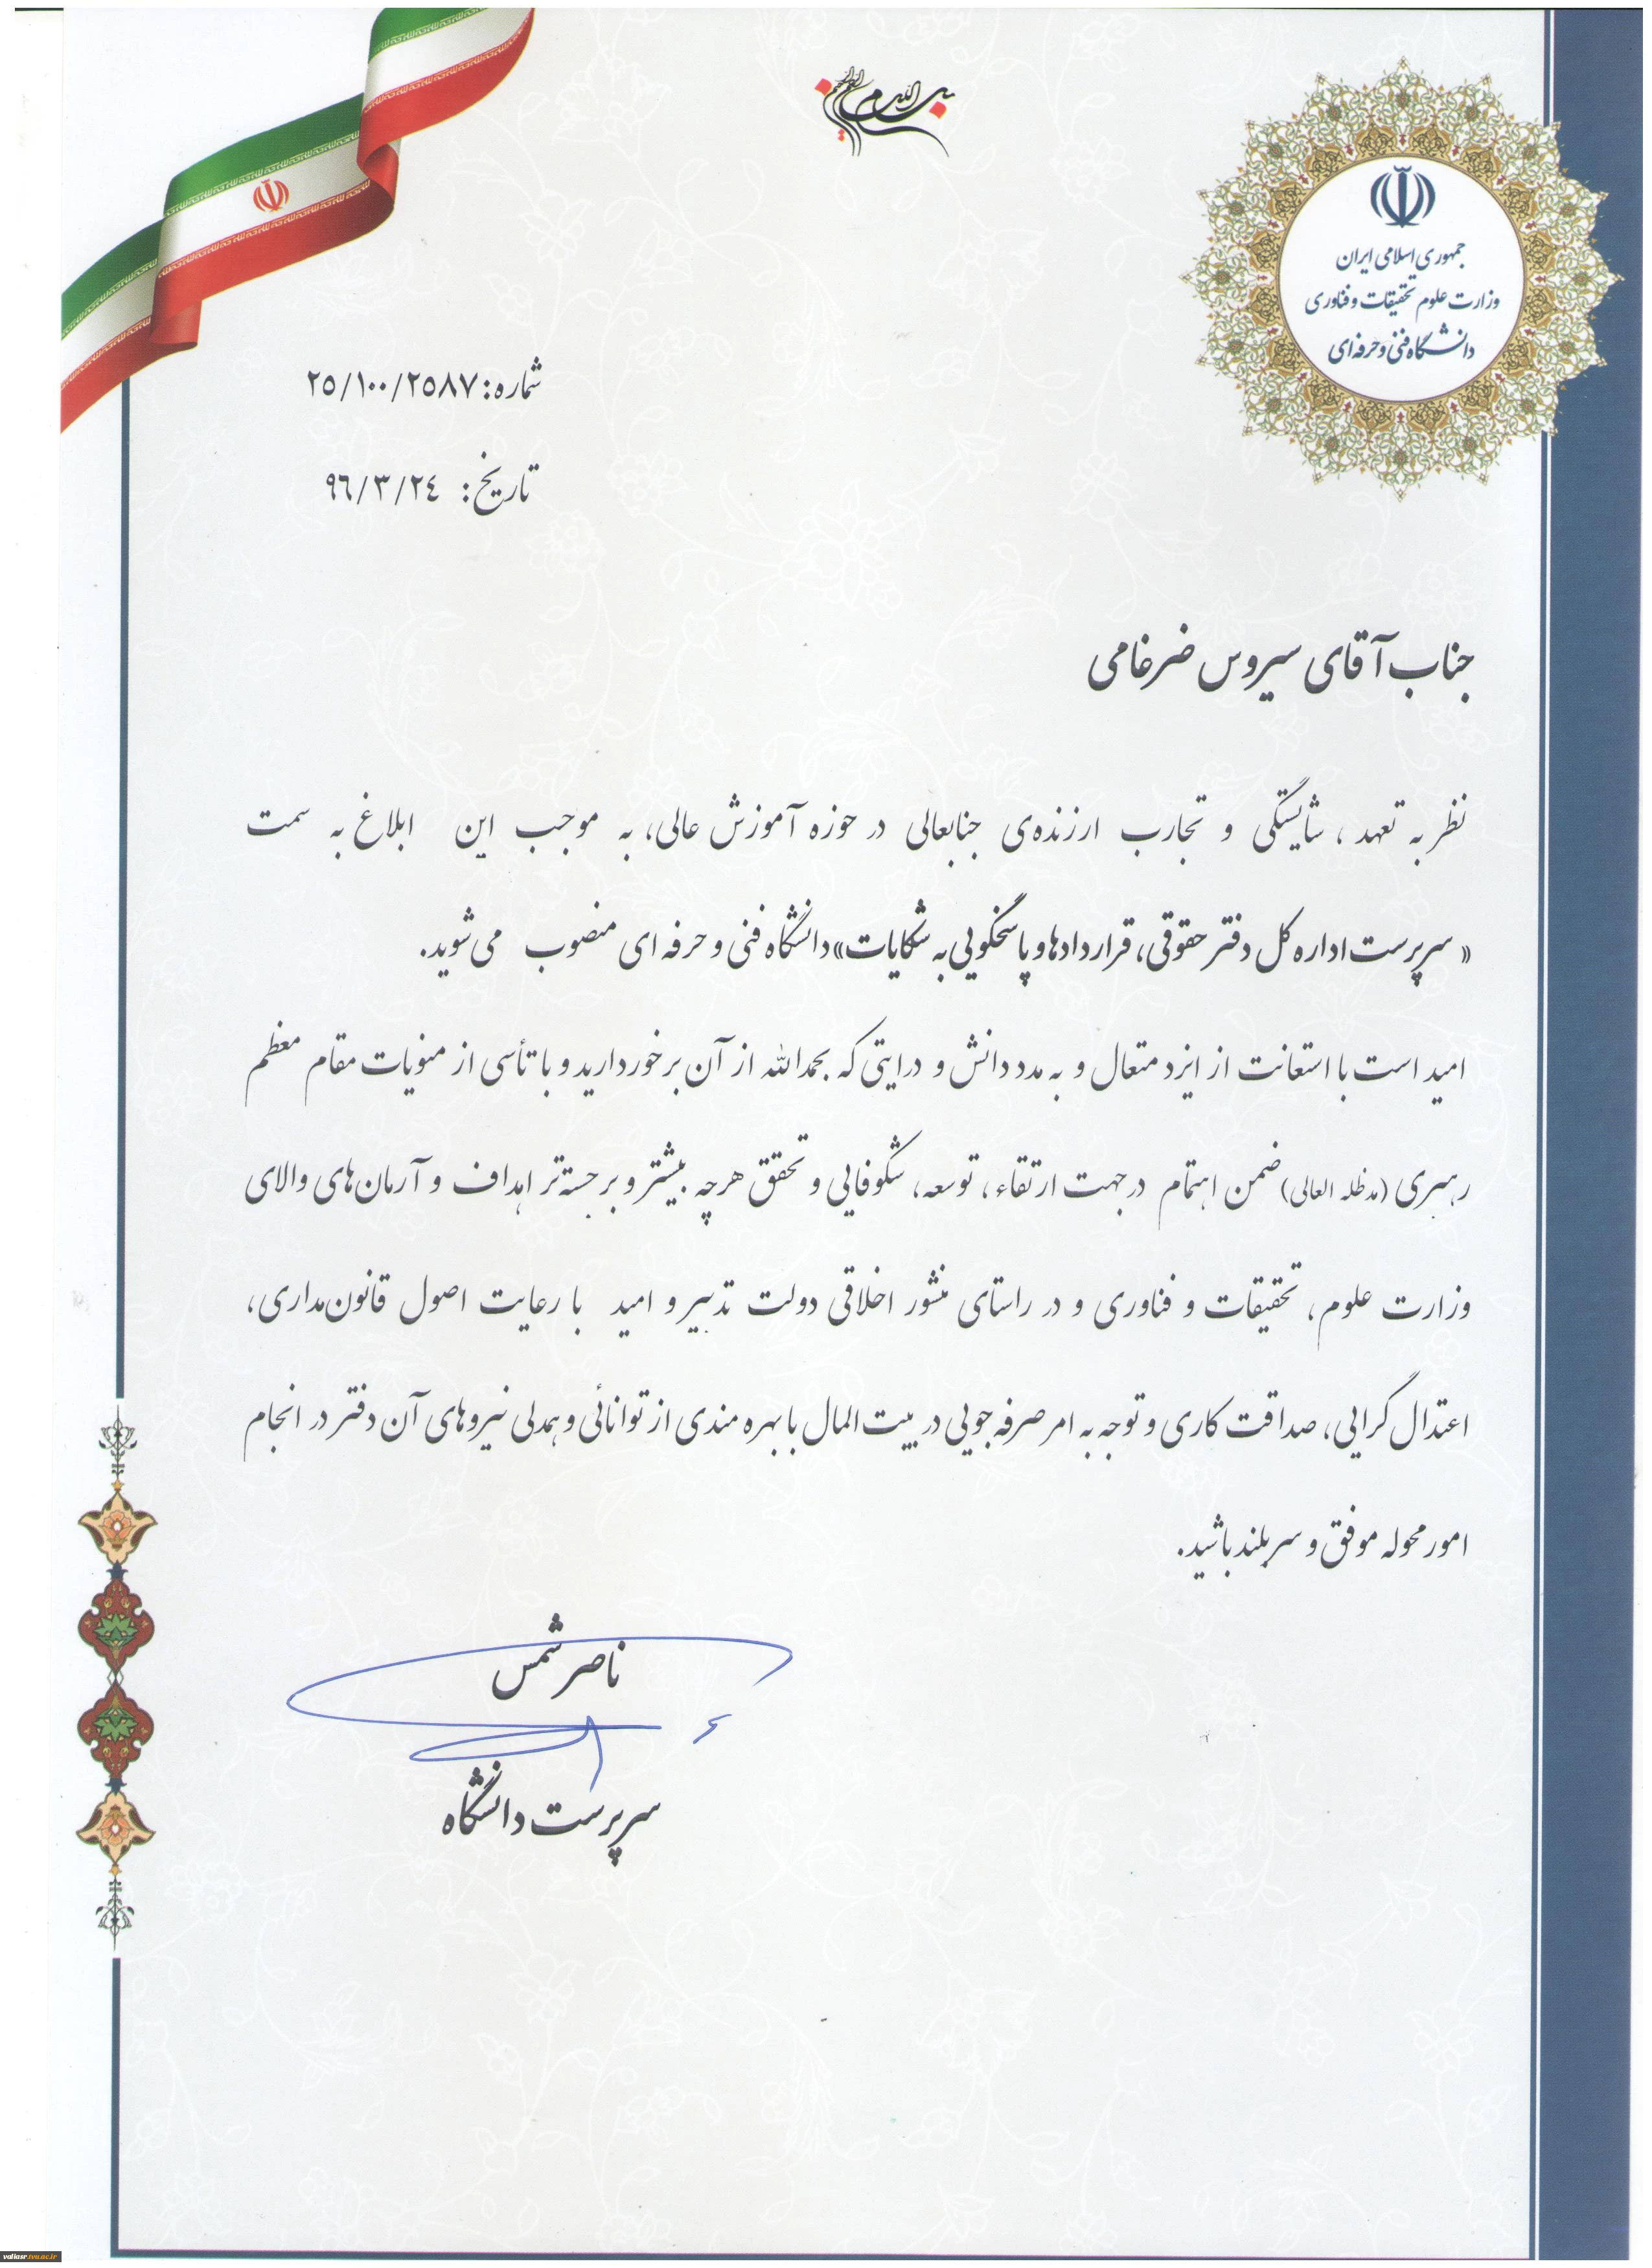 بسم الله الرحمن الرحیم
جمهوری اسلامی ایران
وزارت علوم تحقیقات و فناوری
دانشگاه فنی و حرفه ای
شماره: ٢٥/١٠٠/٢٥٨٧
تاریخ: ٩٦/٣/٢٤
جناب آقای سیروس ضرغامی
نظر به تعهد ، شایستگی و تجارب ارزنده‌ی جنابعالی در حوزه آموزش عالی، به موجب این ابلاغ به سمت
« سرپرست اداره کل دفتر حقوقی، قراردادها و پاسخگویی به شکایات» دانشگاه فنی و حرفه ای منصوب می‌شوید.
امید است با استعانت از ایزد متعال و به مدد دانش و درایتی که بحمدالله از آن برخوردارید و با تأسی از منویات مقام معظم
رهبری (مدظله العالی) ضمن اهتمام در جهت ارتقاء، توسعه، شکوفایی و تحقق هرچه بیشتر و برجسته‌تر اهداف و آرمان‌های والای
وزارت علوم، تحقیقات و فناوری و در راستای منشور اخلاقی دولت تدبیر و امید با رعایت اصول قانون‌مداری،
اعتدال گرایی، صداقت کاری و توجه به امر صرفه جویی در بیت المال با بهره مندی از توانائی و همدلی نیروهای آن دفتر در انجام
امور محوله موفق و سربلند باشید.
ناصر شمس
سرپرست دانشگاه
valiasr.tvu.ac.ir